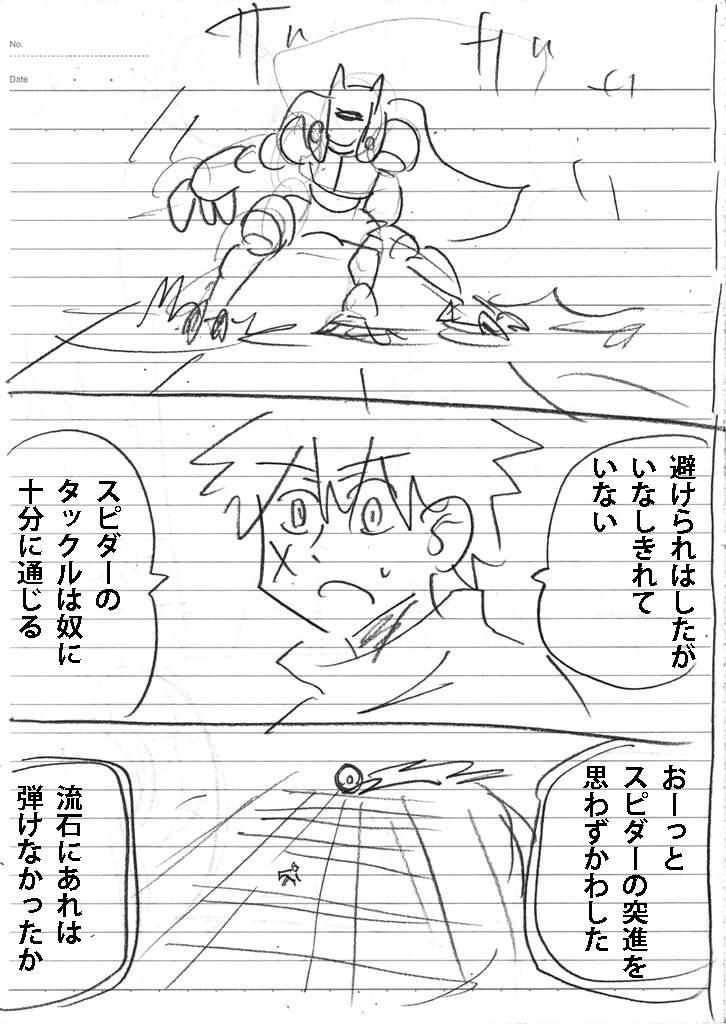 No.
Date
避けられはしたが
いなしきれて
いない
スピダーの
タックルは奴に
十分に通じる
おーっと
スピダーの突進を
思わずかわした
流石にあれは
弾けなかったか